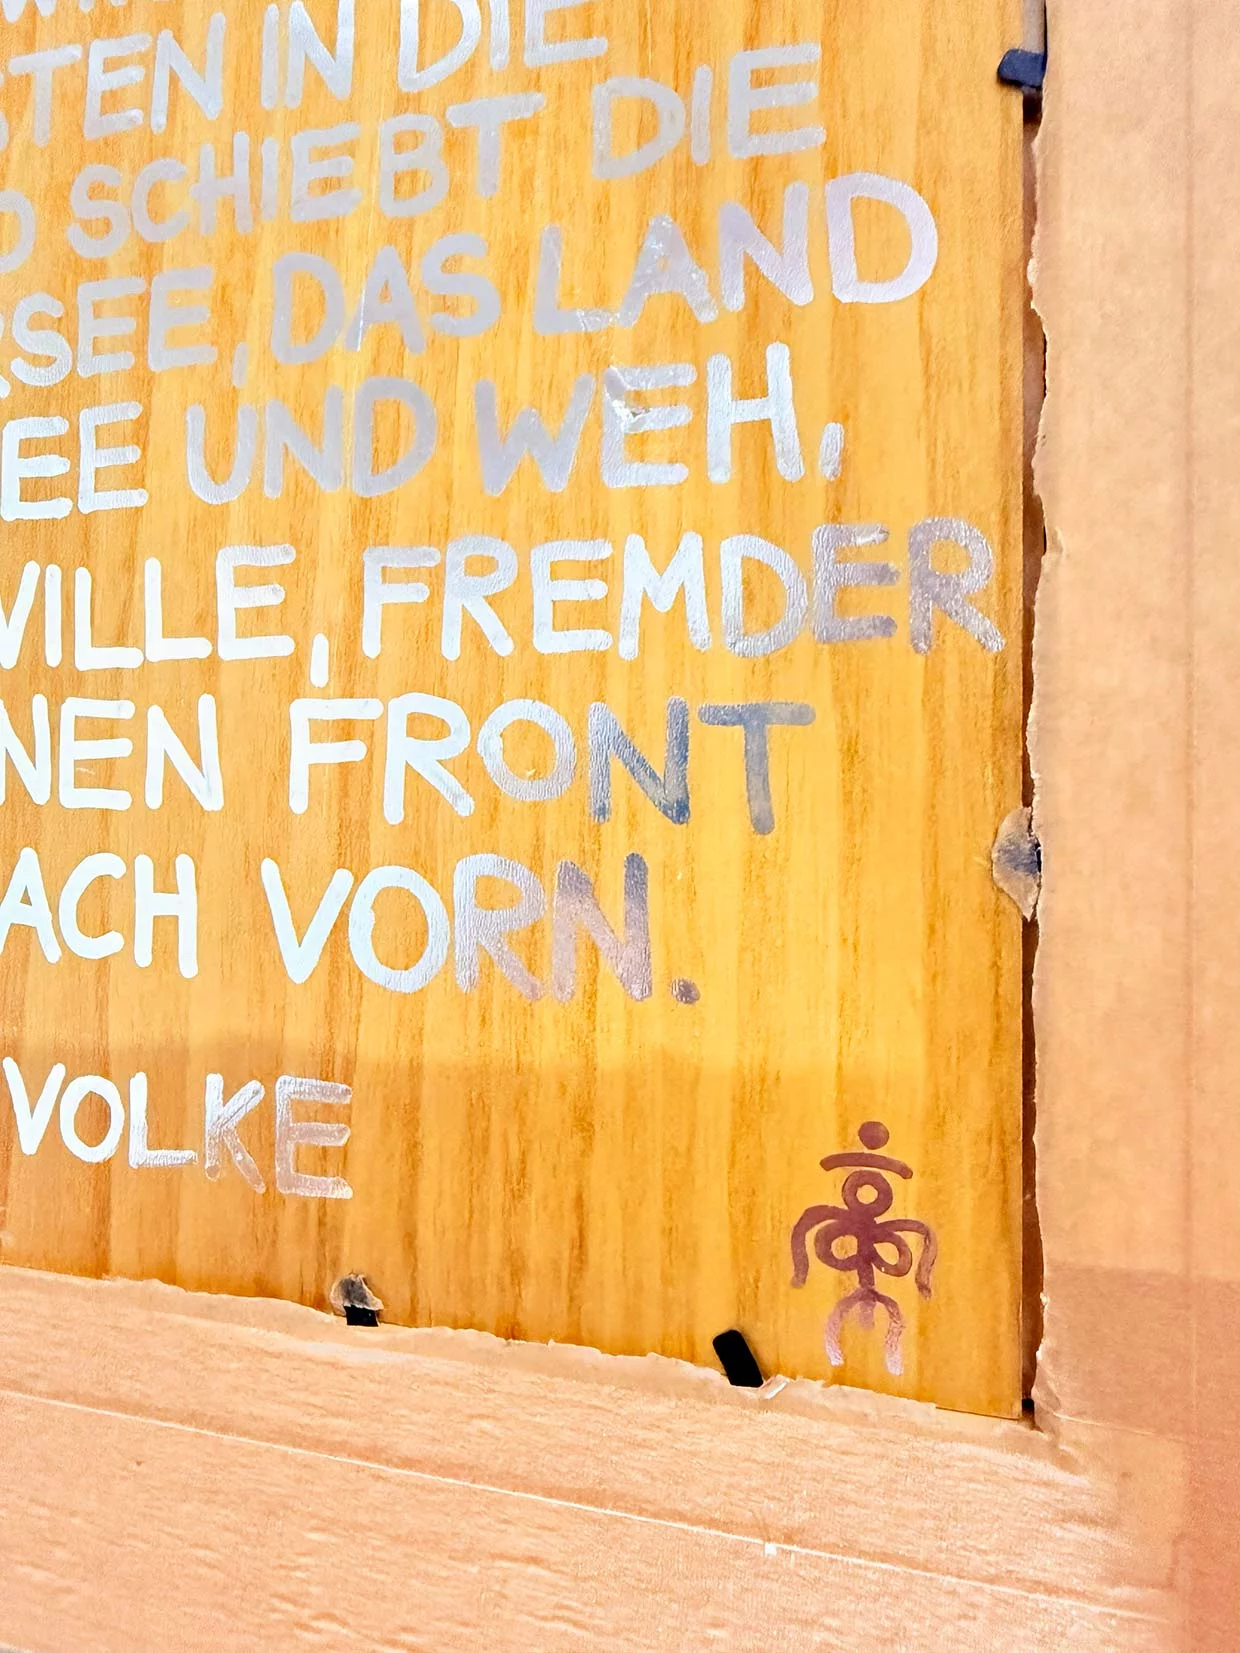 TEN IN DIE
SCHIEBT DIE
SEE, DAS LAND
EE UND WEH,
WILLE, FREMDER
NEN FRONT
ACH VORN.
VOLKE